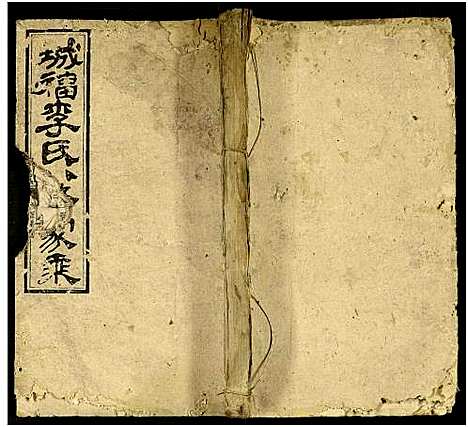 城福李氏家乘